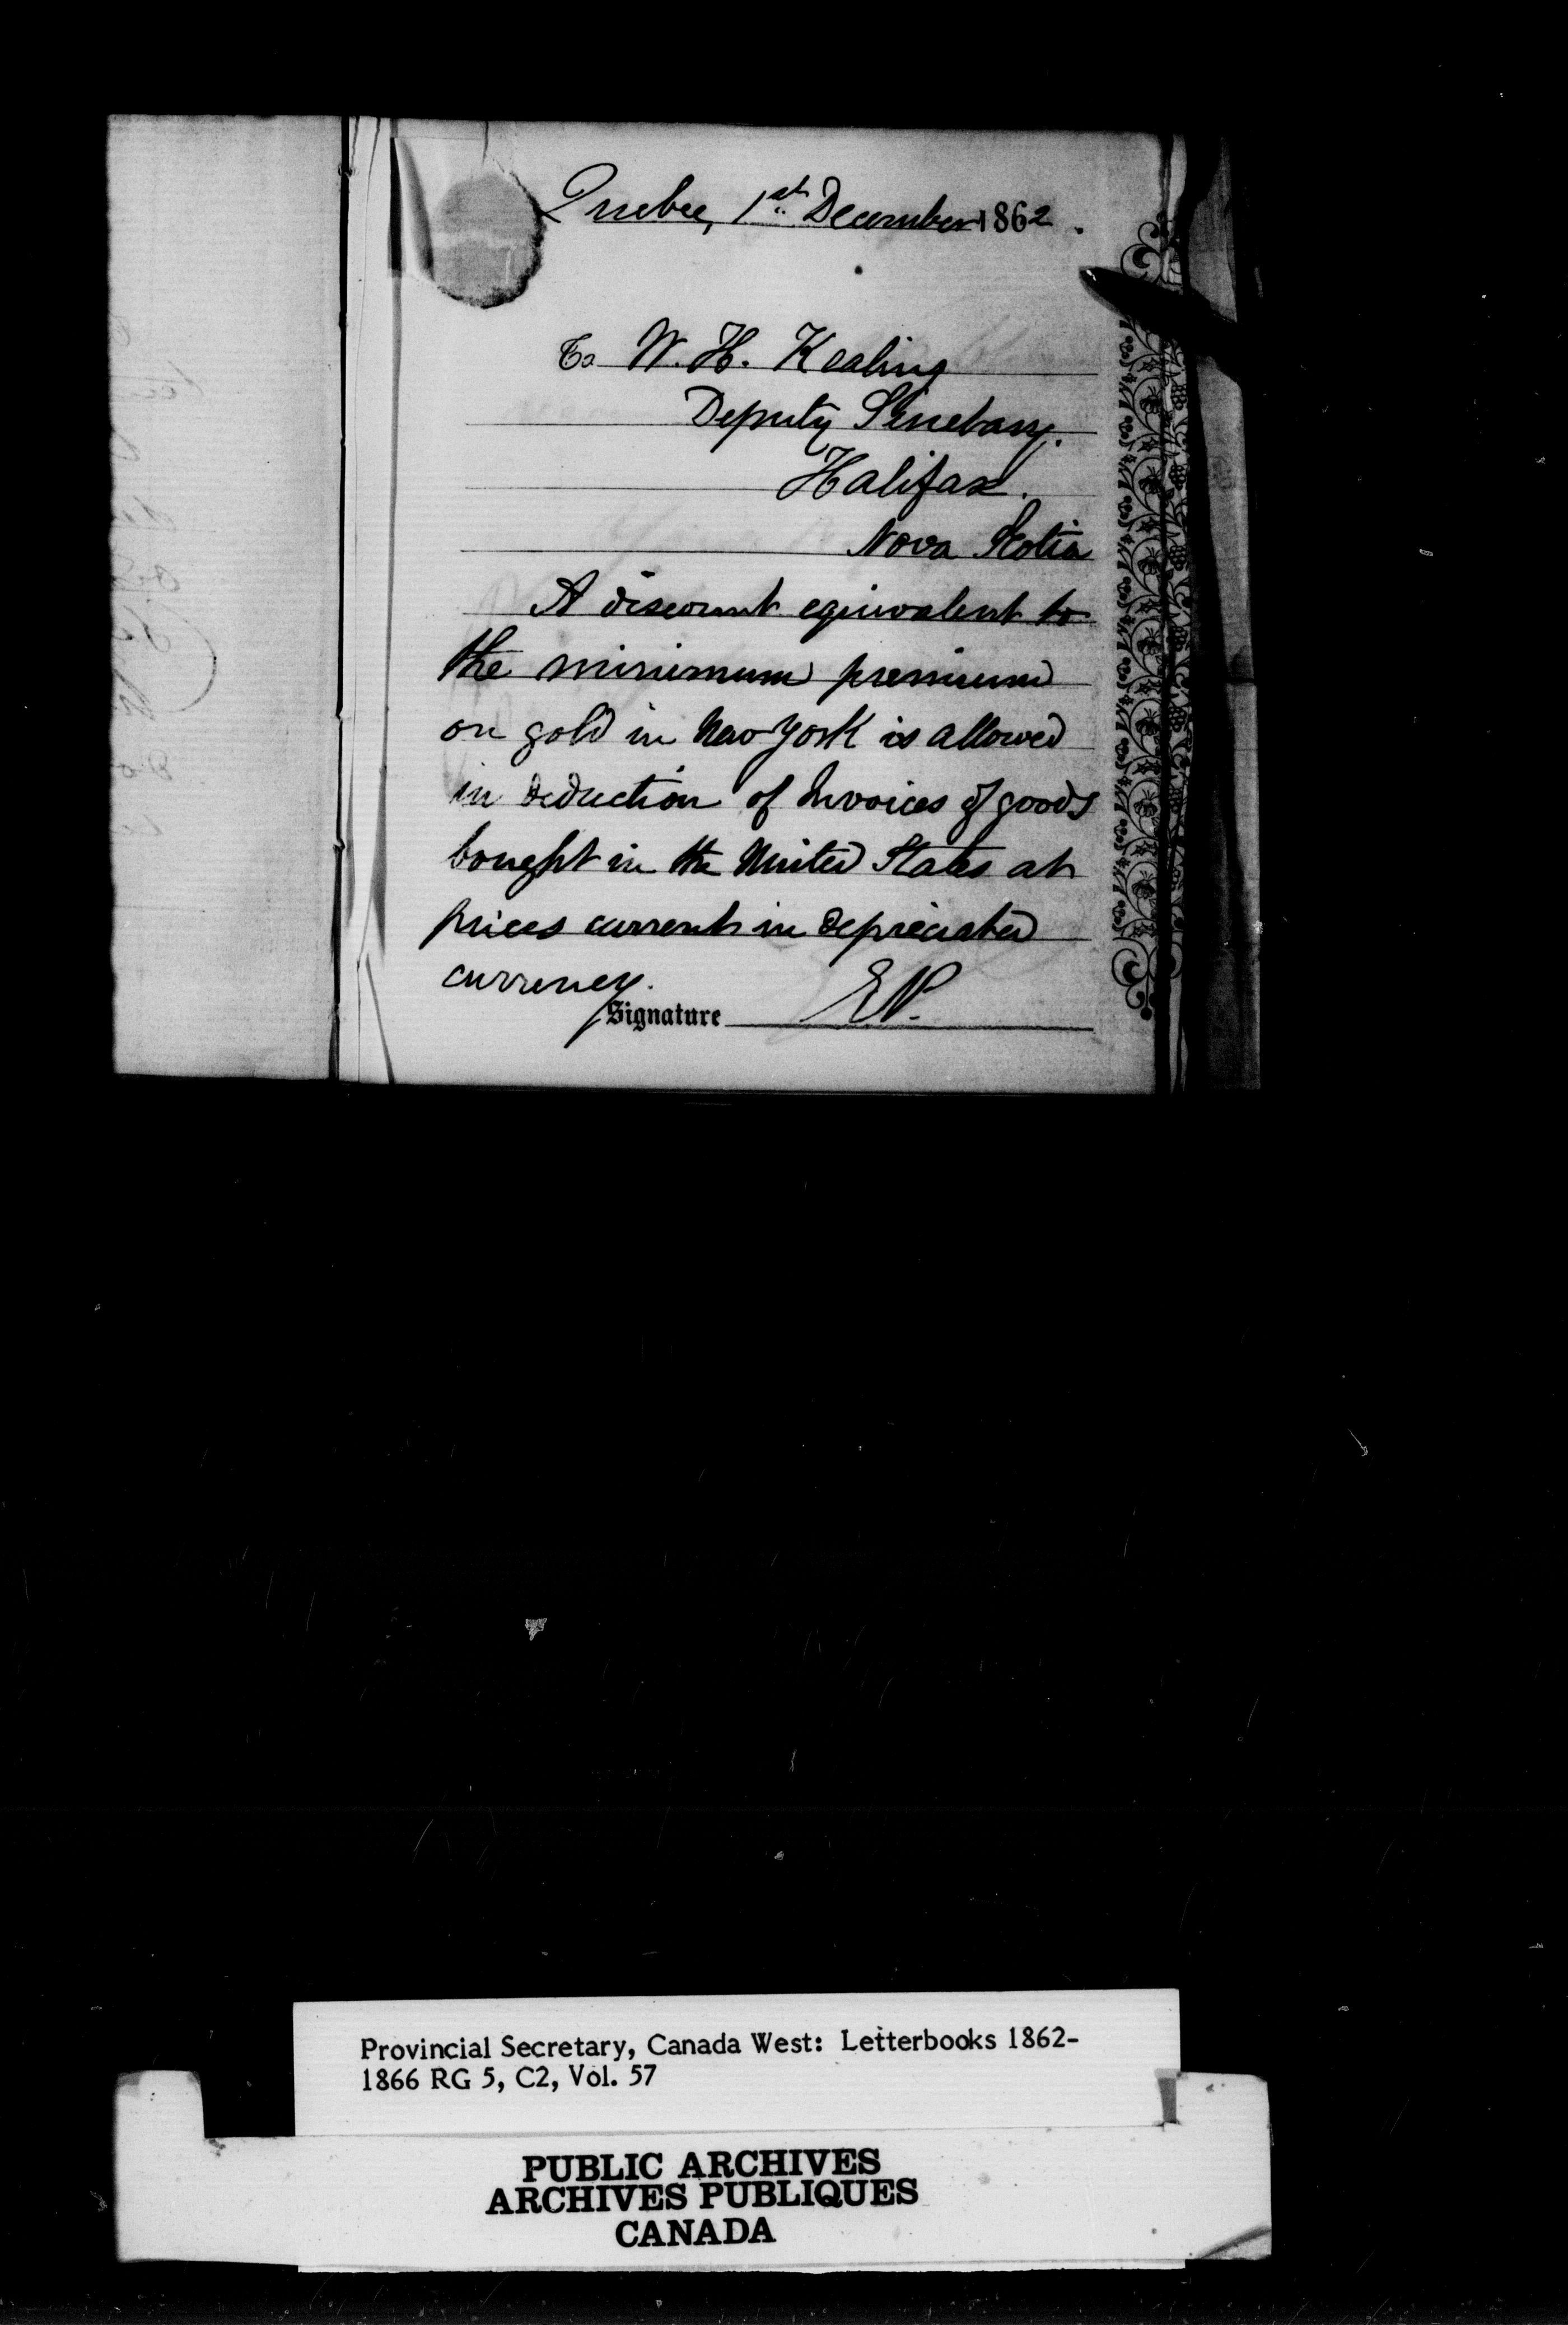 Quebec, 1st December 1862.
To W. H. Keating
Deputy Secretary.
Halifax.
Nova Scotia
A discount equivalent to
the minimum premium
on gold in New York is allowed
in deduction of Invoices of goods
bought in the United States at
prices current in depreciated
currency.
Signature E.P.
Provincial Secretary, Canada West: Letterbooks 1862-
1866 RG 5, C2, Vol. 57
PUBLIC ARCHIVES
ARCHIVES PUBLIQUES
CANADA